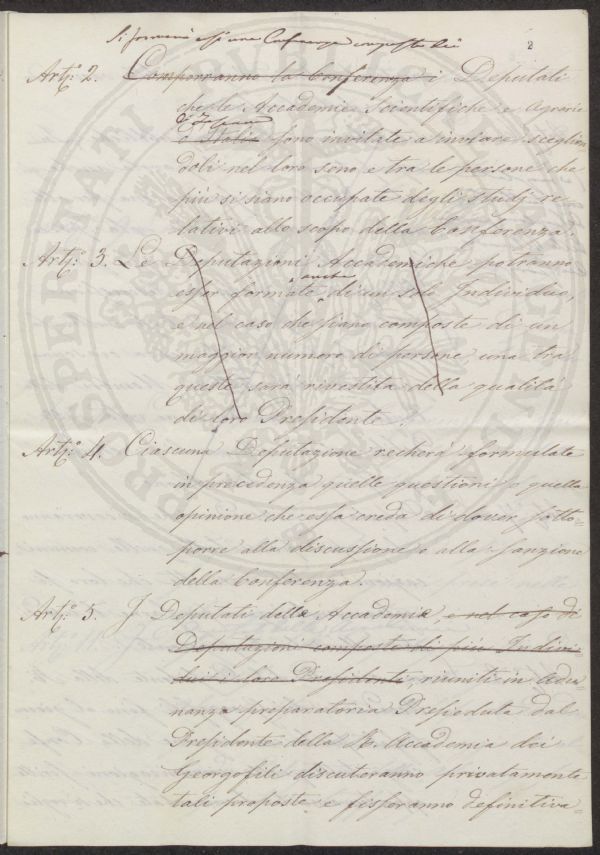 2
Si formerà essi una Conferenza
Art.º 2. Comporranno la Conferenza i Deputati
che le Accademie Scientifiche e Agrarie
d'Italia sono invitate a inviare sceglien
doli nel loro seno, e tra le persone che
più si siano occupate degli studj re=
lativi allo scopo della Conferenza.
Art.º 3. Le Deputazioni Accademiche potranno
anche
esser formate di un solo Individuo,
e nel caso che siano composte di un
maggior numero di persone una tra
queste sarà rivestita della qualità
di loro Presidente.
Art.º 4. Ciascuna Deputazione recherà formulate
in precedenza quelle questioni o quelle
opinione che essa creda di dover sotto=
porre alla discussione e alla sanzione
della Conferenza.
Art.º 5. I Deputati delle Accademie, e nel caso di
Deputazioni composte di più Indivi=
dui i loro Presidenti, riuniti in adu=
nanza preparatoria Presieduta dal
Presidente della R. Accademia dei
Georgofili discuteranno privatamente
tali proposte e fisseranno definitiva=